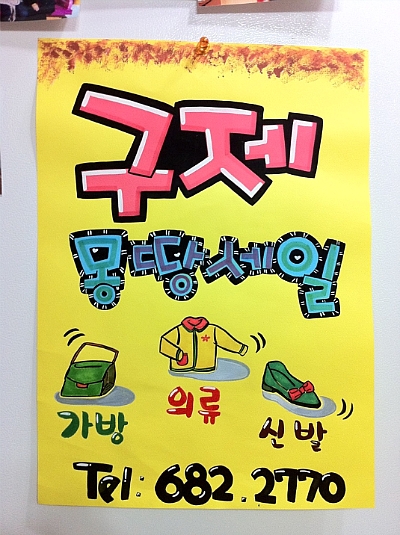 구제
몽땅세일
가방 의류 신발
Tel: 682.2770